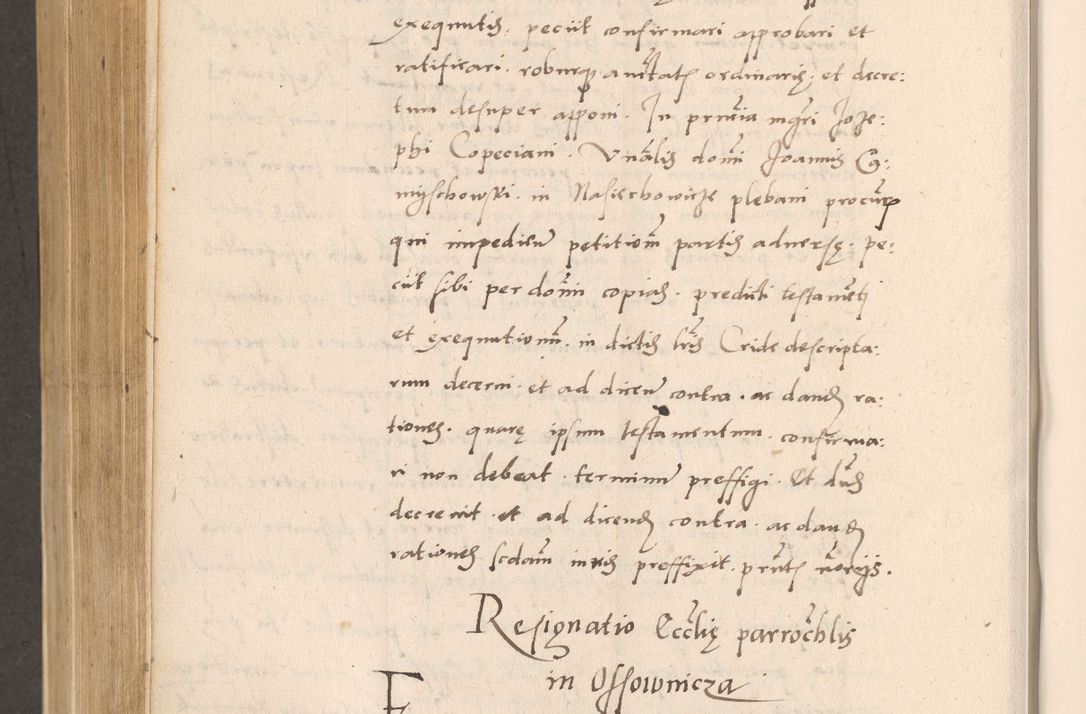 exequutis, peciit confirmari approbari et
ratificari. roburq auctatis ordinarie. et decre:
tum desuper apponi. In pñtia mgri Joze:
phi Copeciani. Vnālis domi Joannis Cą:
myschowski. in Nasiechowicze plebani procurp
qui impedieñ petitionē partis adversę. pe:
ciit sibi per domī copias. predicti testameti
et exequutionū. in dictis lris Cride descripta:
rum decerni. et ad diceñ contra. ac dandas ra:
tiones. quarę ipsum testamentum. confirma:
ri non debeat. terminū preffigi. Et dns
decrevit. et ad dicend contra. ac dand
rationes scdam iuris preffixit. pñtes uōrgis.
Resignatio Ecclię parrochlis
in Ossownicza